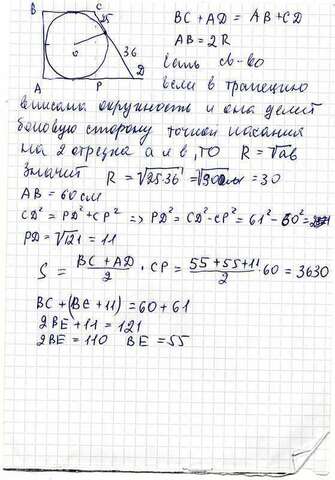 B C 25
36
O
A P D
BC + AD = AB + CD
AB = 2R
есть св-во
если в трапецию
вписана окружность и она делит
боковую сторону точкой касания
на 2 отрезка а и в, то R = √ab
Значит R = √25·36 = √900 = 30
AB = 60 см
CD² = PD² + CP² ⇒ PD² = CD² - CP² = 61² - 60² =
PD = √121 = 11
S = (BC + AD)/2 · CP = (55 + 55 + 11)/2 · 60 = 3630
BC + (BC + 11) = 60 + 61
2BC + 11 = 121
2BC = 110 BC = 55